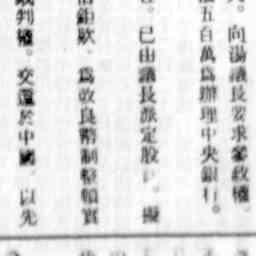 向湯議長要求參政權。
五百萬爲辦理中央銀行。
已由議長派定股 擬
鉅欵、爲改良幣制整頓實
裁判權。交還於中國、以先